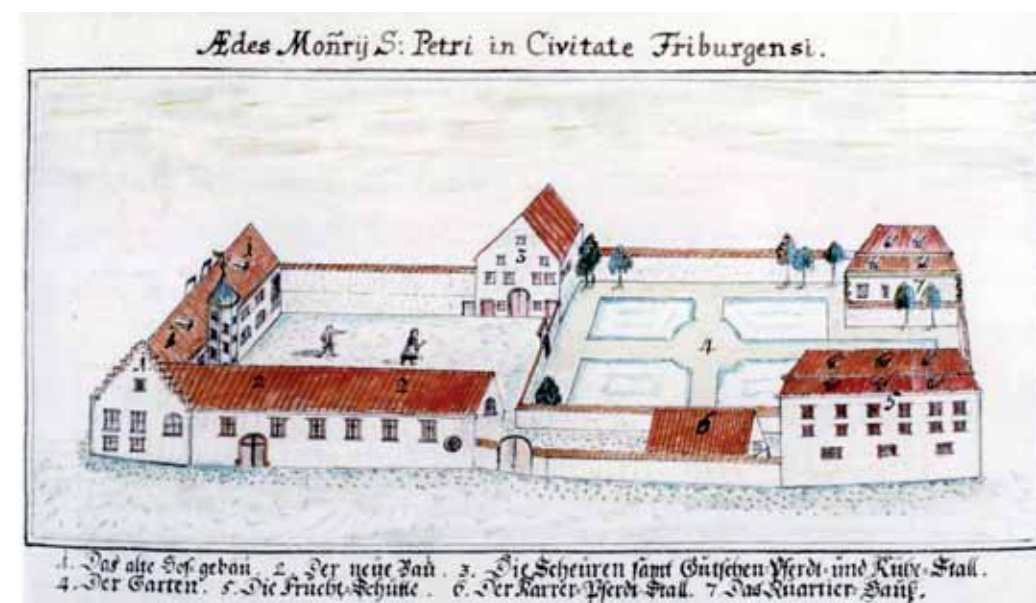 Ædes Moñrij S: Petri in Civitate Friburgensi.
1
1
1
2
2
3
4
5
6
7
1. Das alte Hof-gebaü. 2. Der neüe Baü. 3. Die Scheüren samt Gütschen-Pferdt- und Kühe-Stall.
4. Der Garten. 5. Die Frucht-Schütte. 6. Der Karrer-Pferdt-Stall. 7 Das Quartier-Hauß.